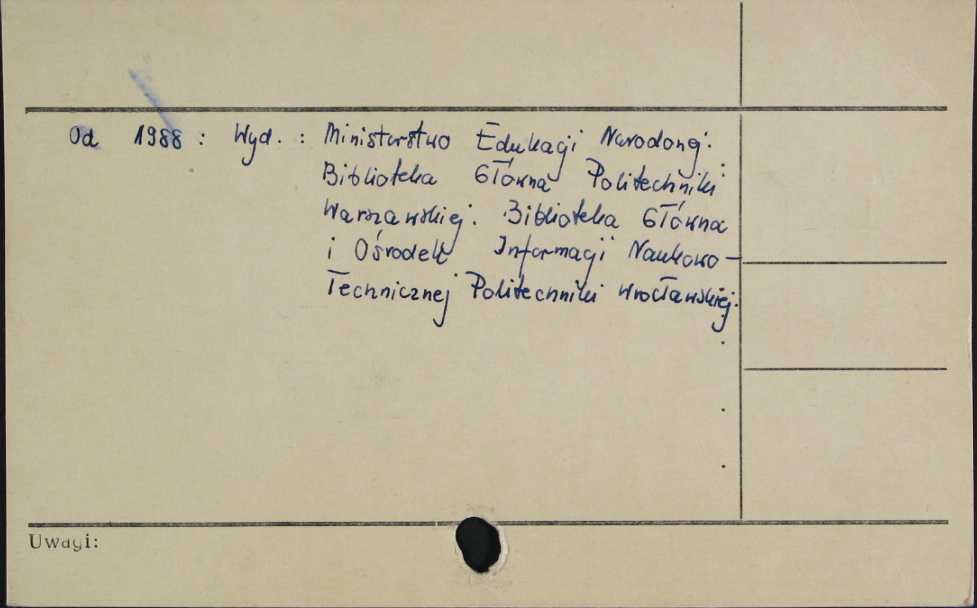 Od 1988 : Wyd. : Ministerstwo Edukacji Narodowej.
Biblioteka Główna Politechniki
Warszawskiej. Biblioteka Główna
i Ośrodek Informacji Naukowo-
Technicznej Politechniki Wrocławskiej.
Uwagi: